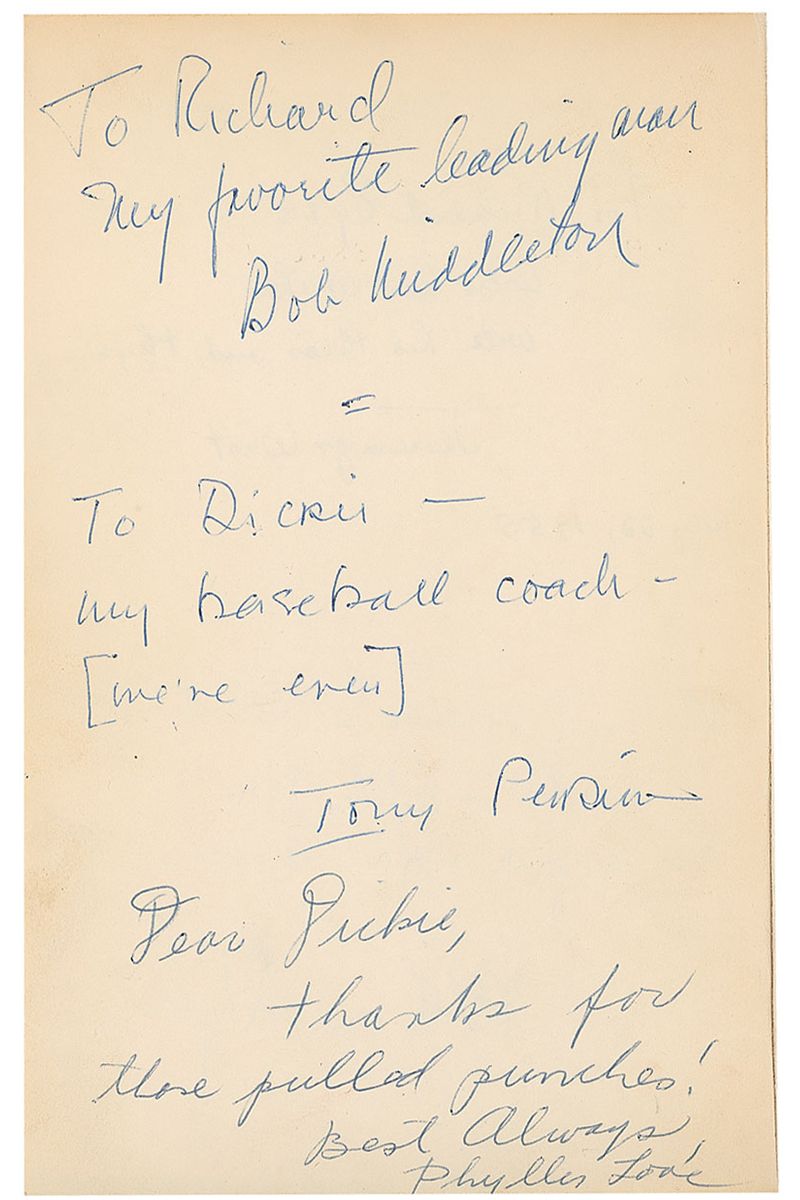 To Richard
My favorite leading man
Bob Middleton
=
To Dickie —
my baseball coach –
[we're even]
Tony Perkins
Dear Dickie,
thanks for
those pulled punches!
Best Always,
Phyllis Love